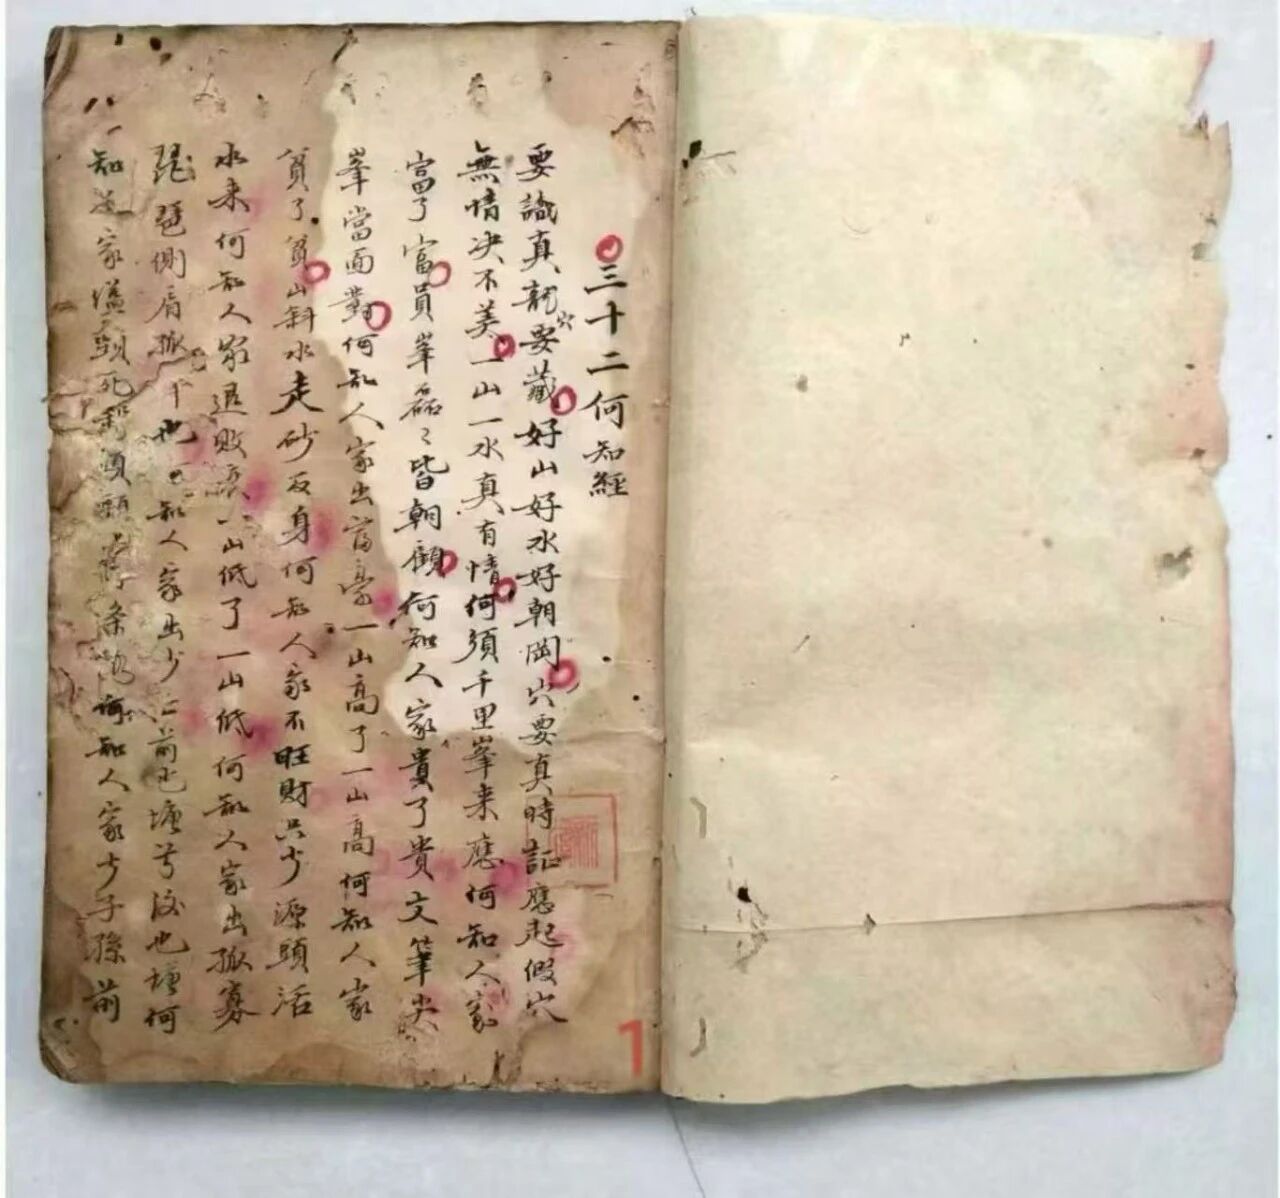 三十二何知經
要識真龍要藏好山好水好朝岡穴要真時証應起假穴
穴
無情决不美一山一水真有情何須千里峯来應何知人家
富了富員峯磊〻皆朝顧何知人家貴了貴文筆尖
峯當面對何知人家出富豪一山高了一山高何知人家
貧了貧山斜水走砂反身何知人家不旺財只少源頭活
水来何知人家退敗一山低了一山低何知人家出孤寡
琵琶側肩孤也知人家出少亡前也塘兮後也塘何
知人家頭死何知人家少子孫前
1